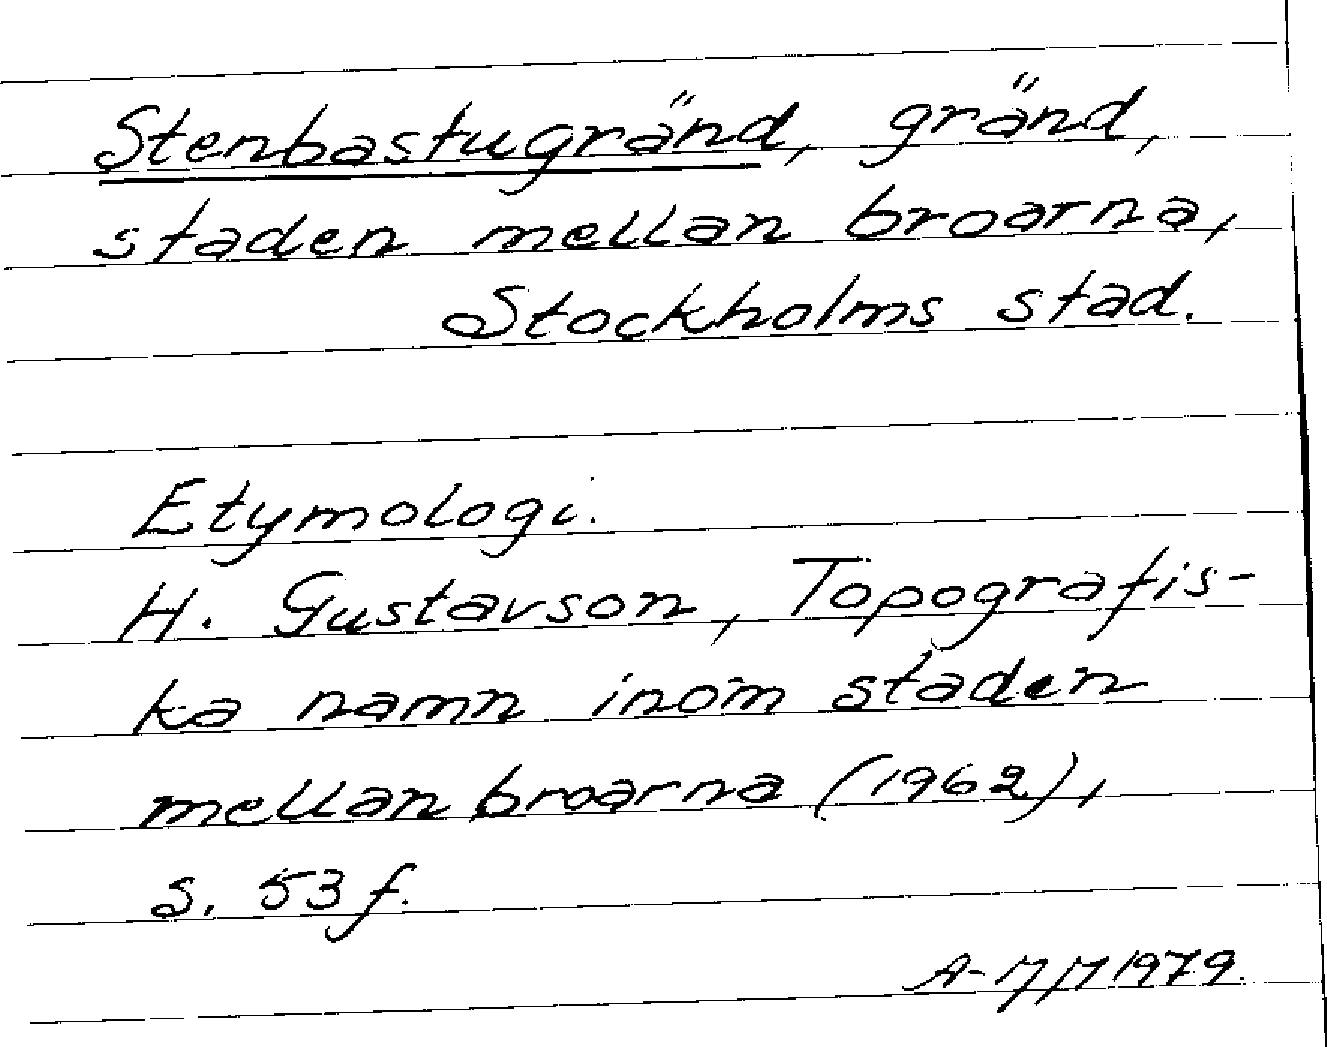 Stenbastugränd, gränd,
staden mellan broarna,
Stockholms stad.
Etymologi.
H. Gustavson, Topografis-
ka namn inom staden
mellan broarna (1962),
s. 53 f.
1979.